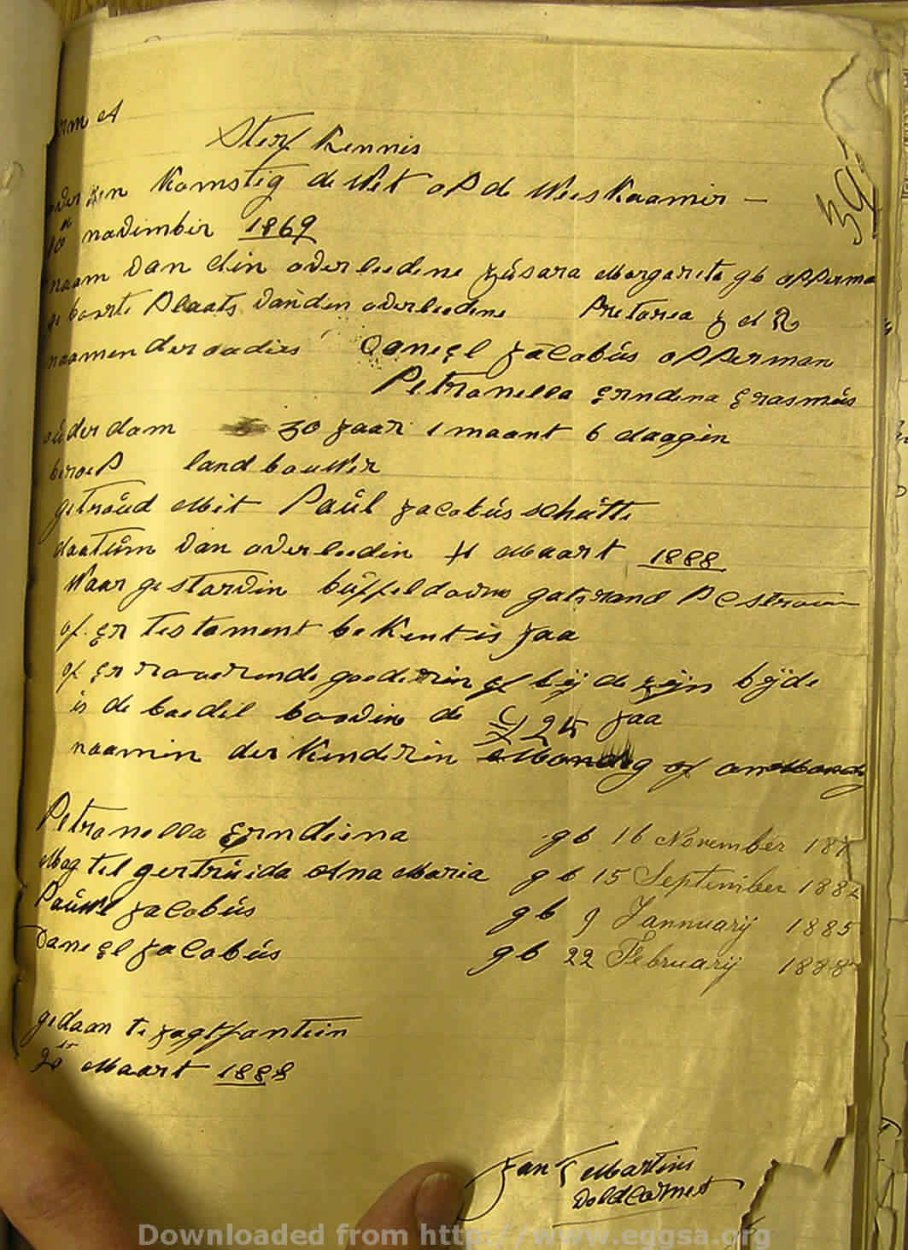 A
Sterf Kennis
Komstig de Wet op de Wees Kaamir —
10de novimbir 1869
naam van Min overleedene Súsara Margarita gb opperma
boorte Plaats vanden overleedene Pretoria Z A R
naamen der oudirs Daniel Jacobús opperman
Petronella Erndina Erasmús
oúderdom 30 jaar 1 maant 6 daagin
beroep landbouwir
getroúd Mit Paúl Jacobús schútte
daatúm van overleedin 4 Maart 1888
Waar gestorvin búffeldoorns gatsrand Pcstroom
of Er testament bekent is Jaa
of Er roowerende goederin of bij de zijn bijde
is de boedel boovin de £ 25 Jaa
naamin der Kenderin Mondig of onMondig
Petronella Erndiena gb 16 November 187
Magtil gertrúida Ana Maria gb 15 September 1882
Paúwl Jacobús gb 9 Jannuarij 1885
Daniel Jacobús gb 22 Februarij 1888
gedaan te Jagtfontein
Maart 1888
39
Jan Martins
VeldCornet
Downloaded from http://www.eggsa.org